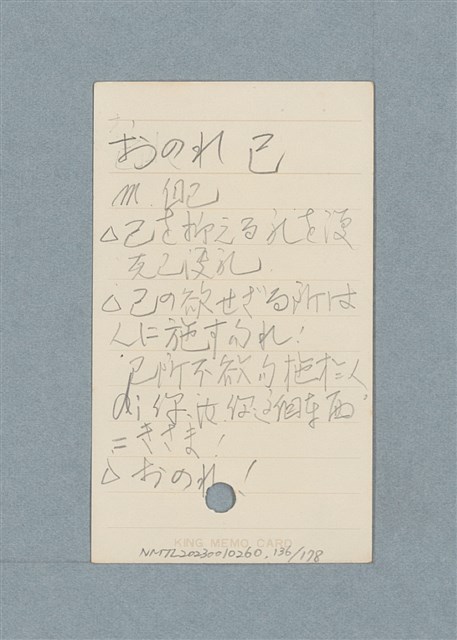 おのれ 己
m. 自己
△己を抑える礼を復
克己復礼
△己の欲せざる所は
人に施す勿れ!
己所不欲勿施於人
di 你、汝、你這個東西
=きさま!
△おのれ!
KING MEMO CARD
NMTL20230010260.136/178